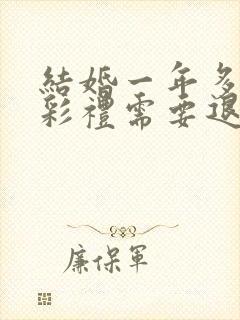 結婚一年多
彩禮需要退
廉保軍